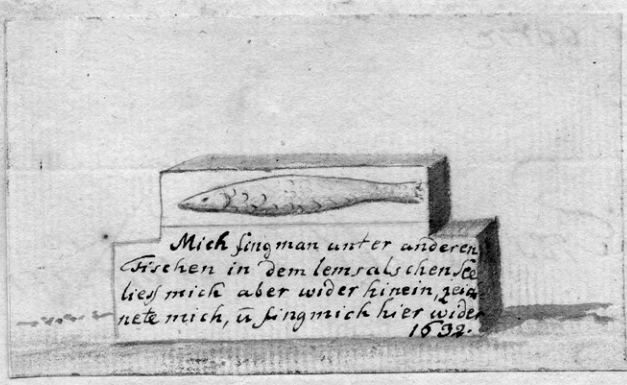 Mich fingman unter anderen
Fischen in dem lemsalschen See
liess mich aber wider hinein, zeig
nete mich, ū fing mich hier wider
1692.